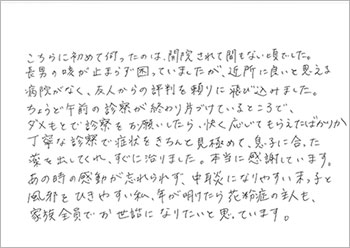 こちらに初めて伺ったのは、開院されて間もない頃でした。
長男の咳が止まらず困っていましたが、近所に良いと思える
病院がなく、友人からの評判を頼りに飛び込みました。
ちょうど午前の診察が終わり片づけているところで、
ダメもとで診察をお願いしたら、快く応じてもらえたばかりか
丁寧な診察で症状をきちんと見極めて、息子に合った
薬を出してくれ、すぐに治りました。本当に感謝しています。
あの時の感動が忘れられず、中耳炎になりやすい末っ子と
風邪をひきやすい私、年が明けたら花粉症の主人も、
家族全員でお世話になりたいと思っています。